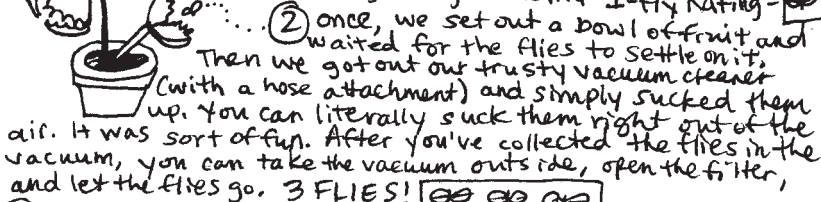 1-fly Rating-
② once, we set out a bowl of fruit and
waited for the flies to settle on it.
Then we got out our trusty vacuum cleaner
(with a hose attachment) and simply sucked them
up. You can literally suck them right out of the
air. It was sort of fun. After you've collected the flies in the
vacuum, you can take the vacuum outside, open the filter,
and let the flies go. 3 FLIES!